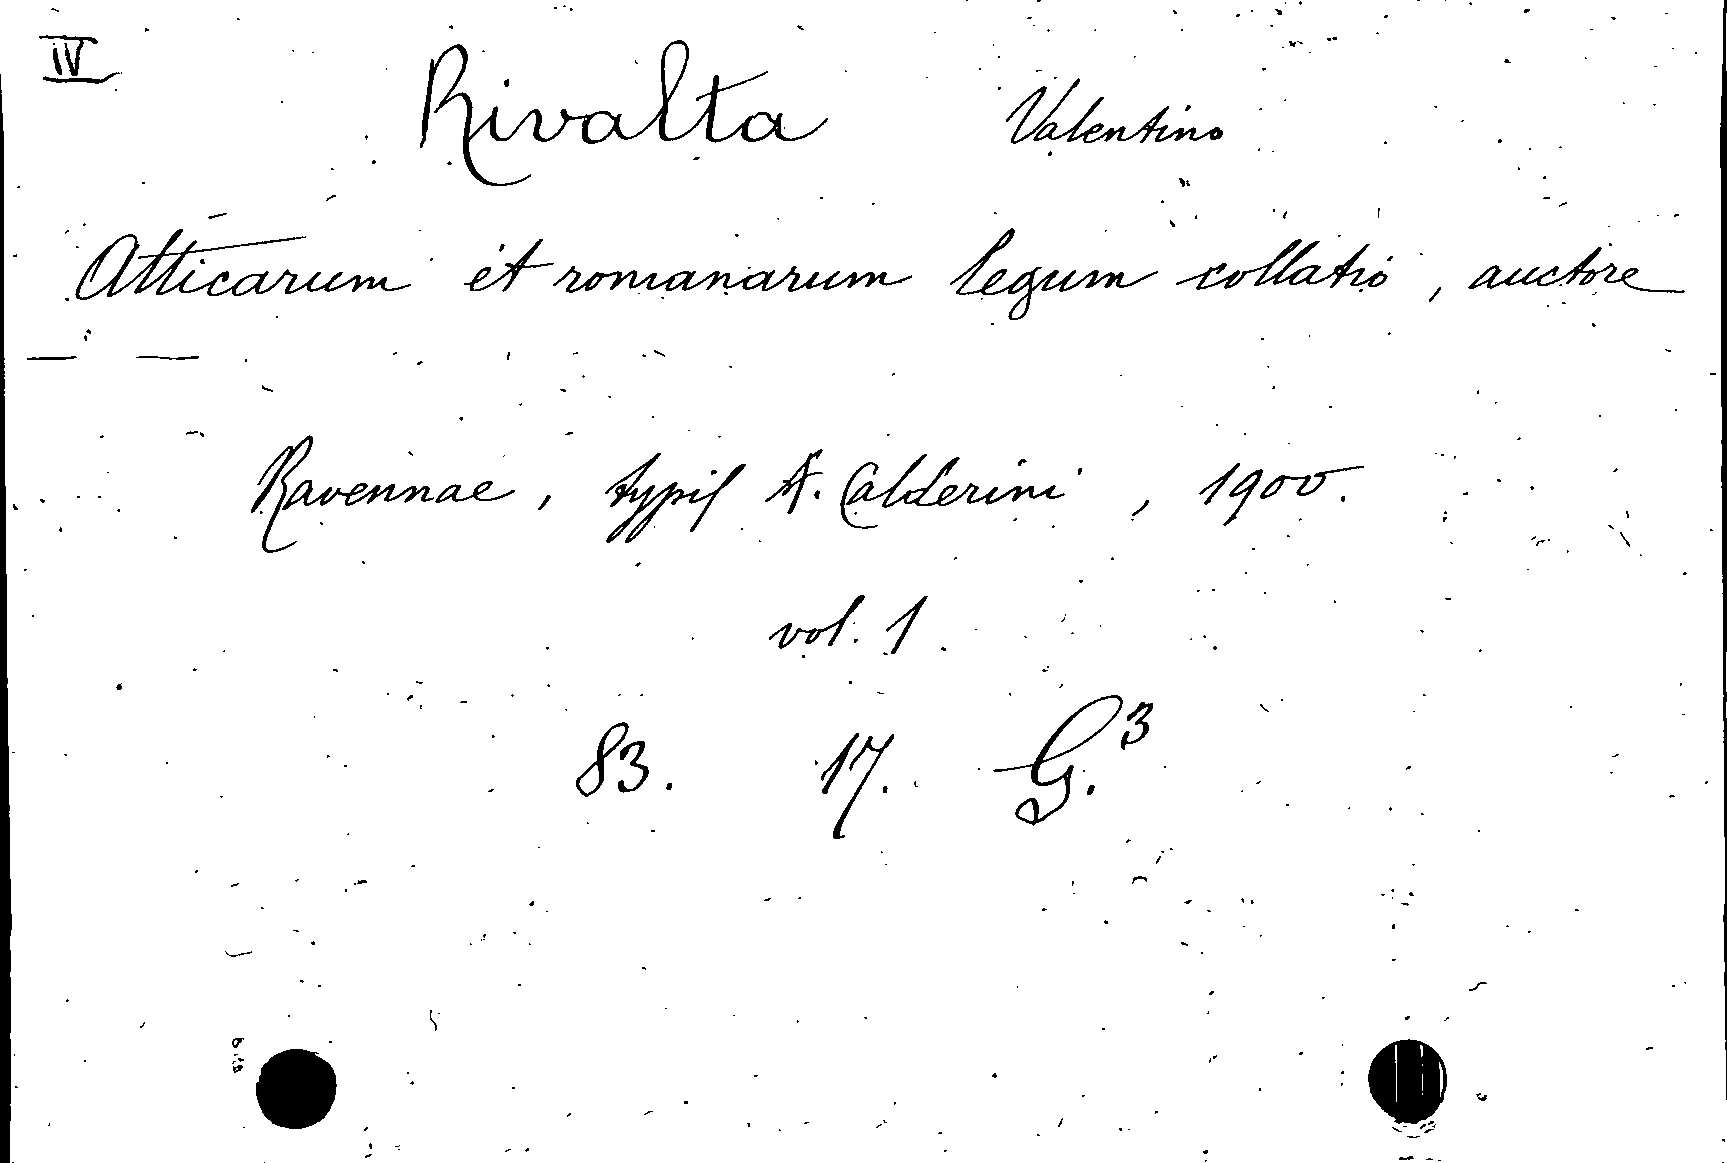 IV
Rivalta Valentino
Atticarum et romanarum legum collatio, auctore
— —
Ravennae, typis A. Calderini, 1900.
vol. 1
83. 17. G.³